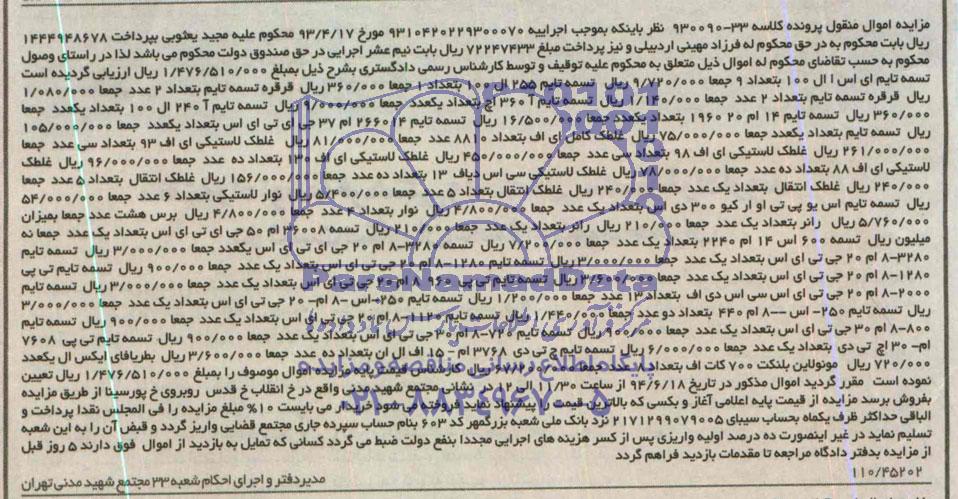 مزایده اموال منقول پرونده کلاسه ۳۳-۹۳۰۰۹۰ نظر باینکه بموجب اجراییه ۹۳۱۰۴۲۰۲۲۹۳۰۰۰۷۰ مورخ ۹۳/۴/۱۷ محکوم علیه مجید یعثوبی بپرداخت ۱۴۴۴۹۴۸۶۷۸
ریال بابت محکوم به در حق محکوم له فرزاد مهینی اردبیلی و نیز پرداخت مبلغ ۷۲۲۴۷۴۳۳ ریال بابت نیم عشر اجرایی در حق صندوق دولت محکوم می باشد لذا در راستای وصول
محکوم به حسب تقاضای محکوم له اموال ذیل متعلق به محکوم علیه توقیف و توسط کارشناس رسمی دادگستری بشرح ذیل بمبلغ ۱/۴۷۶/۵۱۰/۰۰۰ ریال ارزیابی گردیده است
تسمه تایم ای اس ا ال ۱۰۰ بتعداد ۹ جمعا ۹/۷۲۰/۰۰۰ ریال تسمه تایم ۲۵۵ ال ۱۰۰ بتعداد ۱ جمعا ۳۶۰/۰۰۰ ریال قرقره تسمه تایم بتعداد ۲ عدد جمعا ۱/۰۸۰/۰۰۰
ریال قرقره تسمه تایم بتعداد ۲ عدد جمعا ۱/۱۴۰/۰۰۰ ریال تسمه تایم آ ۳۶۰ اچ بتعداد یکعدد جمعا ریال تسمه تایم آ ۲۴۰ ال ۱۰۰ بتعداد یکعدد جمعا
۳۶۰/۰۰۰ ریال تسمه تایم ۱۴ ام ۲۰ ۱۹۶۰ بتعداد یکعدد جمعا ۱۶/۵۰۰/۰۰۰ ریال تسمه تایم ۱۴ ۲۶۶۰ ام ۳۷ جی ای تی ای اس بتعداد یکعدد جمعا ۱۰۵/۰۰۰
ریال تسمه تایم بتعداد یکعدد جمعا ۷۵/۰۰۰/۰۰۰ ریال غلطک کامل ای اف بتعداد ۸۸۱ عدد جمعا ۸۱/۰۰۰/۰۰۰ ریال غلطک لاستیکی ای اف ۹۳ بتعداد سی عدد جمعا
۲۶۱/۰۰۰/۰۰۰ ریال غلطک لاستیکی ای اف ۹۸ بتعداد سی عدد جمعا ۴۵۰/۰۰۰/۰۰۰ ریال غلطک لاستیکی ای اف ۱۳۰ بتعداد ده عدد جمعا ۹۶/۰۰۰/۰۰۰ ریال غلطک
لاستیکی ای اف ۸۸ بتعداد ده عدد جمعا ۷۸/۰۰۰/۰۰۰ ریال غلطک لاستیکی سی اس دیاف ۱۳ بتعداد ده عدد جمعا ۱۵۶/۰۰۰/۰۰۰ ریال غلطک انتقال بتعداد ۵ عدد جمعا
۲۴۰/۰۰۰ ریال غلطک انتقال بتعداد یک عدد جمعا ۲۴۰/۰۰۰ ریال غلطک انتقال بتعداد ۵ عدد جمعا ۵/۴۰۰/۰۰۰ ریال نوار لاستیکی بتعداد ۶ عدد جمعا ۵۴/۰۰۰/۰۰۰
ریال تسمه تایم اس یو پی تی او ار کیو ۳۰۰ دی اس بتعداد یک عدد جمعا ۴/۸۰۰/۰۰۰ ریال نوار بتعداد ۴ عدد جمعا ۴/۸۰۰/۰۰۰ ریال برس هشت عدد جمعا بمیزان
۵/۷۶۰/۰۰۰ ریال رانر بتعداد یک عدد جمعا ۲۱۰/۰۰۰ ریال رانر بتعداد یک عدد جمعا ۲۱۰/۰۰۰ ریال تسمه ۳۶۰۰۸ ام ۵۰ جی ای تی ای اس بتعداد یک عدد جمعا نه
میلیون ریال تسمه ۶۰۰ اس ۱۴ ام ۲۲۴۰ بتعداد یک عدد جمعا ۷/۲۰۰/۰۰۰ ریال تسمه ۳۲۸۰-۸ ام ۲۰ جی ای تی ای اس یکعدد جمعا ۳/۰۰۰/۰۰۰ ریال تسمه تایم
۳۲۸۰-۸ ام ۲۰ جی تی ای اس بتعداد یک عدد جمعا ۳/۰۰۰/۰۰۰ ریال تسمه تایم ۱۲۸۰-۸ ام ۲۰ جی تی ای اس بتعداد یک عدد جمعا ۹۰۰/۰۰۰ ریال تسمه تایم
۱۲۸۰-۸ ام ۲۰ جی تی ای اس بتعداد یک عدد جمعا ۳/۶۰۰/۰۰۰ ریال تسمه تایم تی پی ۹۶۰ ۸ ام ۲۰ جی تی ای اس بتعداد یک عدد جمعا ۳/۰۰۰/۰۰۰ ریال تسمه تایم تی پی
۲۰۰۰-۸ ام ۲۰ جی تی ای اس سی اس دی اف بتعداد ۱۳ عدد جمعا ۱/۲۰۰/۰۰۰ ریال تسمه تایم ۲۵۰-اس -۸ ام- ۲۰ جی تی ای اس بتعداد یک عدد جمعا ۳/۰۰۰/۰۰۰
ریال تسمه تایم ۲۵۰- اس --۸ ام ۴۴۰ بتعداد دو عدد جمعا ۱/۴۴۰/۰۰۰ ریال تسمه تایم ۱۱۲۰-۸ ام ۲۰ جی تی ای اس بتعداد یک عدد جمعا ۹۰۰/۰۰۰ ریال تسمه تایم
۸۰۰-۸ ام ۳۰ جی تی ای اس بتعداد یک عدد جمعا ریال تسمه تایم ۷۲۰-۸ ام ۳۰ جی تی ای اس بتعداد یک عدد جمعا ۹۰۰/۰۰۰ ریال تسمه تایم تی پی ۷۶۰۸
ام- ۳۰ اچ تی دی بتعداد یک عدد جمعا ۶/۰۰۰/۰۰۰ ریال تسمه تایم اچ تی دی ۳۷۶۸ ام - ۱۵ اف ال ان بتعداد ده عدد جمعا ۳/۶۰۰/۰۰۰ ریال بطریافای ایکس ال یکعدد
۷۲۰/۰۰۰ ریال مونولاین بلنکت ۷۰۰ کات اف بتعداد ۸ عدد جمعا ۶۷/۲۰۰/۰۰۰ ریال کارشناس قیمت پایه مزایده اموال موصوف را بمبلغ ۱/۴۷۶/۵۱۰/۰۰۰ ریال تعیین
نموده است مقرر گردید اموال مذکور در تاریخ ۹۴/۶/۱۸ از ساعت ۱۱/۳۰ الی ۱۲ در نشانی مجتمع شهید مدنی واقع در خ انقلاب خ قدس روبروی خ پورسینا از طریق مزایده
بفروش برسد مزایده از قیمت پایه اعلامی آغاز و بکسی که بالاترین قیمت را پیشنهاد نماید فروخته می شود خریدار می بایست ۱۰% مبلغ مزایده را فی المجلس نقدا پرداخت و
الباقی حداکثر ظرف یکماه بحساب سیبای ۲۱۷۱۲۹۹۰۷۹۰۰۵ نزد بانک ملی شعبه بزرگمهر کد ۶۰۳ بنام حساب سپرده جاری مجتمع قضایی واریز گردد و قبض آن را به این شعبه
تسلیم نماید در غیر اینصورت ده درصد اولیه واریزی پس از کسر هزینه های اجرایی مجددا بنفع دولت ضبط می گردد کسانی که تمایل به بازدید از اموال فوق دارند ۵ روز قبل
از مزایده بدفتر دادگاه مراجعه تا مقدمات بازدید فراهم گردد
۱۱۰/۴۵۲۰۲
مدیردفتر و اجرای احکام شعبه ۳۳ مجتمع شهید مدنی تهران
ParsNamadData
۰۲۱-۸۸۳۴۹۶۷۰-۵